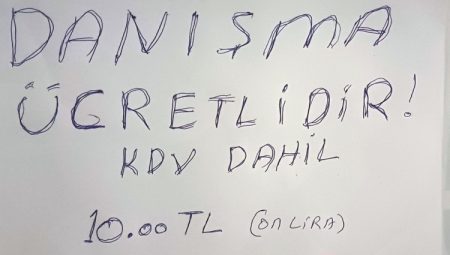 DANIŞMA
ÜCRETLİDİR!
KDV DAHİL
10.00 TL (ON LİRA)